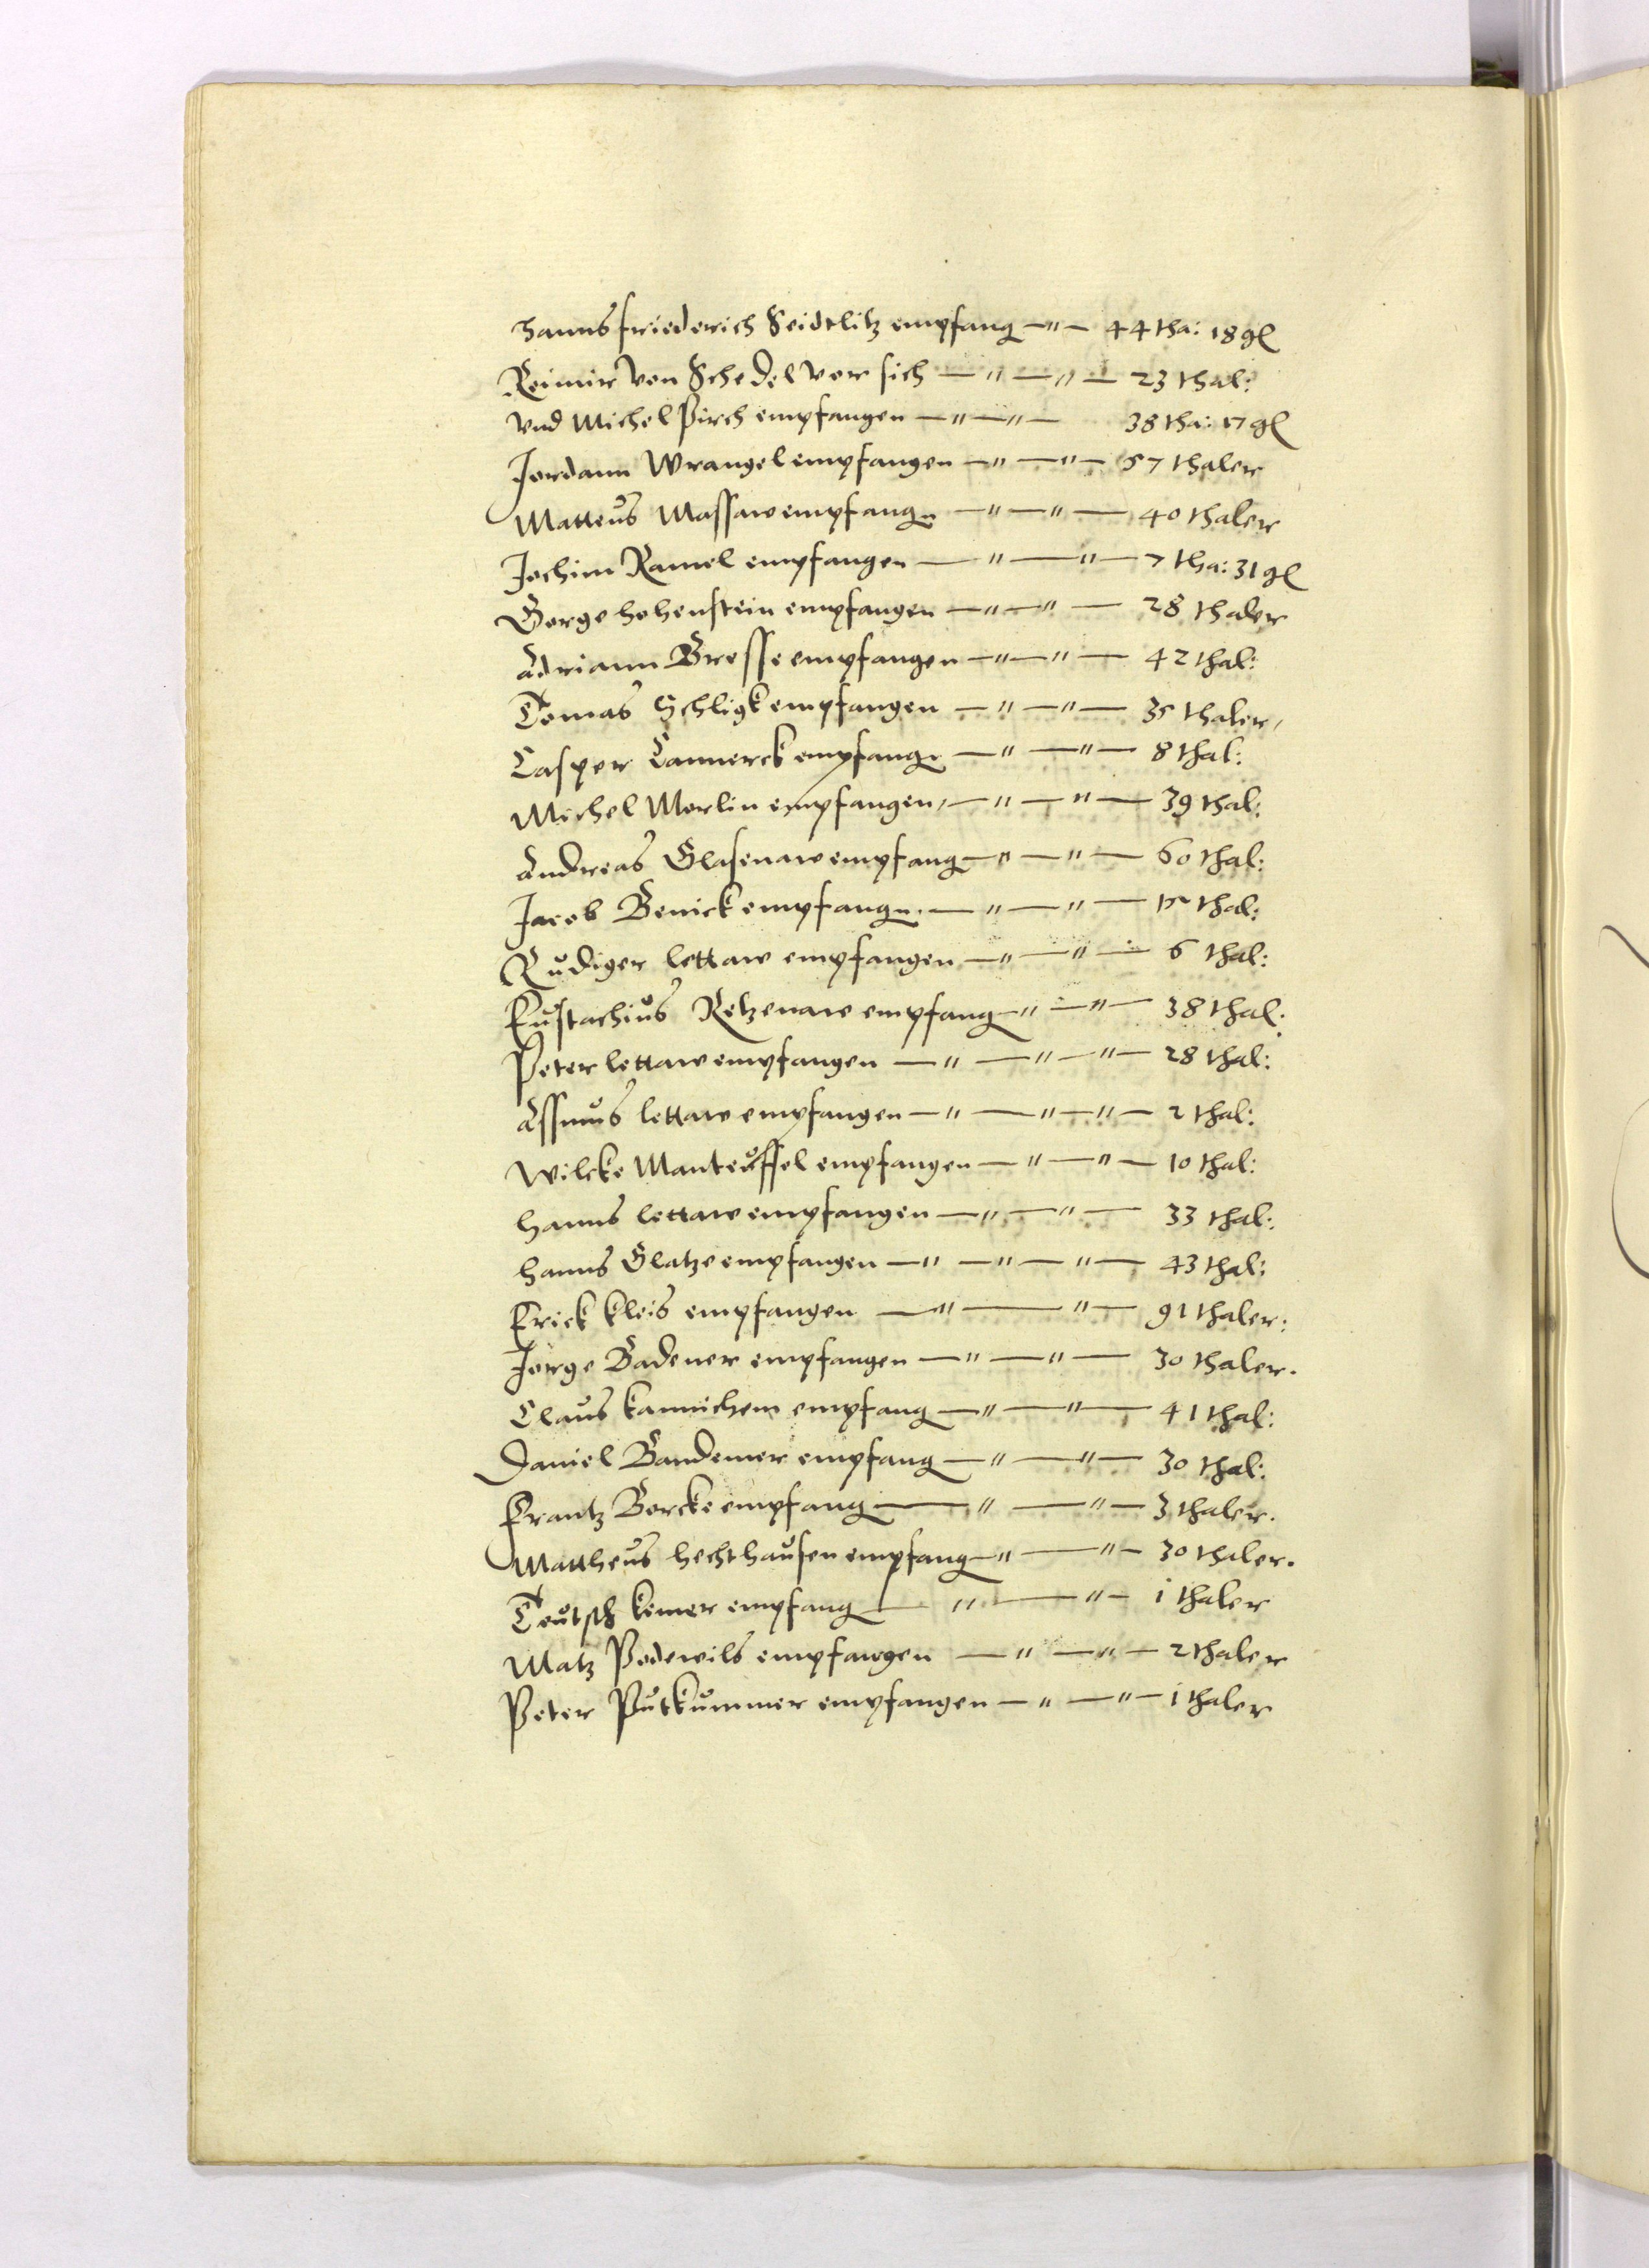 Hanns friederich Seidtlitz empfang —"— 44 tha: 18 gl
Reimir von Schedel vor sich —"—"— 23 thal:
vnd Michel Pirch empfangen —"—"— 38 tha: 17 gl
Jordann Wrangel empfangen —"—"— 57 thaler
Matteus Massaw empfangn —"—"— 40 thaler
Jochim Ramel empfangen —"—"— 7 tha: 31 gl
Gorge hohenstein empfangen —"—"— 28 thaler
Adriann Bresse empfangen —"—"— 42 thal:
Tomas Schligk empfangen —"—"— 35 thaler,
Casper empfangn —"—"— 8 thal:
Michel Morlin empfangen, —"—"— 39 thal:
Andreas Glasenaw empfang —"—"— 60 thal:
Jacob Benick empfangn. —"—"— thal:
Rudiger lettaw empfangen —"—"— 6 thal:
Eustachius Retzenaw empfang —"—"— 38 thal.
Peter lettaw empfangen —"—"—"— 28 thal:
Assmus lettaw empfangen —"—"—"— 2 thal:
Wilcke Manteuffel empfangen —"—"— 10 thal:
hanns lettaw empfangen —"—"— 33 thal:
hanns Glatze empfangen —"—"—"— 43 thal:
Erick kleis empfangen —"—"— 91 thaler:
Jorge Badener empfangen —"—"— 30 thaler.
Claus kannichem empfang —"—"— 41 thal:
Daniel Bandemer empfang —"—"— 30 thal:
Frantz Borcke empfang —"—"— 3 thaler.
Mattheus hechthausen empfang —"—"— 30 thaler.
Teutsch kemer empfang —"—"— 1 thaler
Matz Podewils empfangen —"—"— 2 thaler
Peter Putkummer empfangen —"—"— 1 thaler